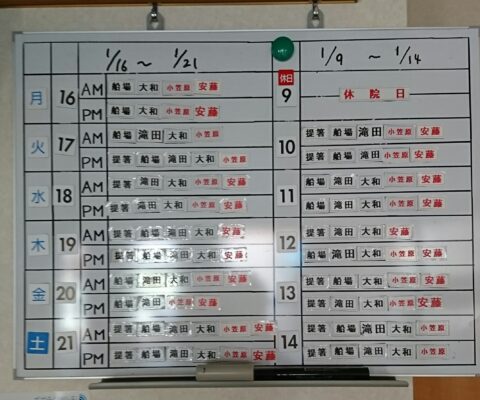 1/16 ～ 1/21
1/9 ～ 1/14
月 16 AM 船場 大和 小笠原 安藤
PM 船場 大和 小笠原 安藤
休日 9 休院日
火 17 AM 船場 滝田 大和 小笠原
PM 提箸 船場 滝田 大和 小笠原
10 提箸 船場 滝田 小笠原 安藤
提箸 船場 滝田 小笠原 安藤
水 18 AM 提箸 滝田 大和 小笠原 安藤
PM 提箸 滝田 大和 小笠原 安藤
11 船場 滝田 大和 小笠原 安藤
船場 滝田 大和 小笠原 安藤
木 19 AM 提箸 船場 滝田 大和 安藤
PM 提箸 船場 滝田 大和 安藤
12 提箸 船場 滝田 大和 安藤
船場 滝田 大和 小笠原 安藤
金 20 AM 船場 滝田 大和 小笠原 安藤
PM 船場 滝田 小笠原 安藤
13 提箸 滝田 大和 小笠原 安藤
提箸 滝田 大和 小笠原 安藤
土 21 AM 提箸 船場 滝田 大和 小笠原 安藤
PM 提箸 船場 滝田 大和 小笠原 安藤
14 提箸 船場 滝田 大和 小笠原
提箸 船場 滝田 大和 小笠原